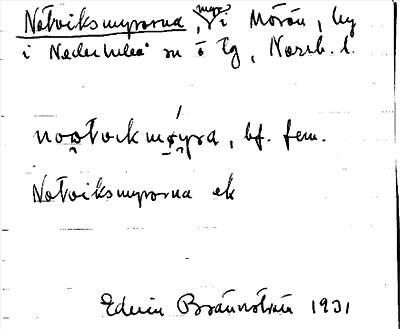 Notviksmyrorna, myr i Mörön, by
i Nederluleå sn o tg, Norrb. l.
Notviksmyrorna ek
Edvin Brännström 1931